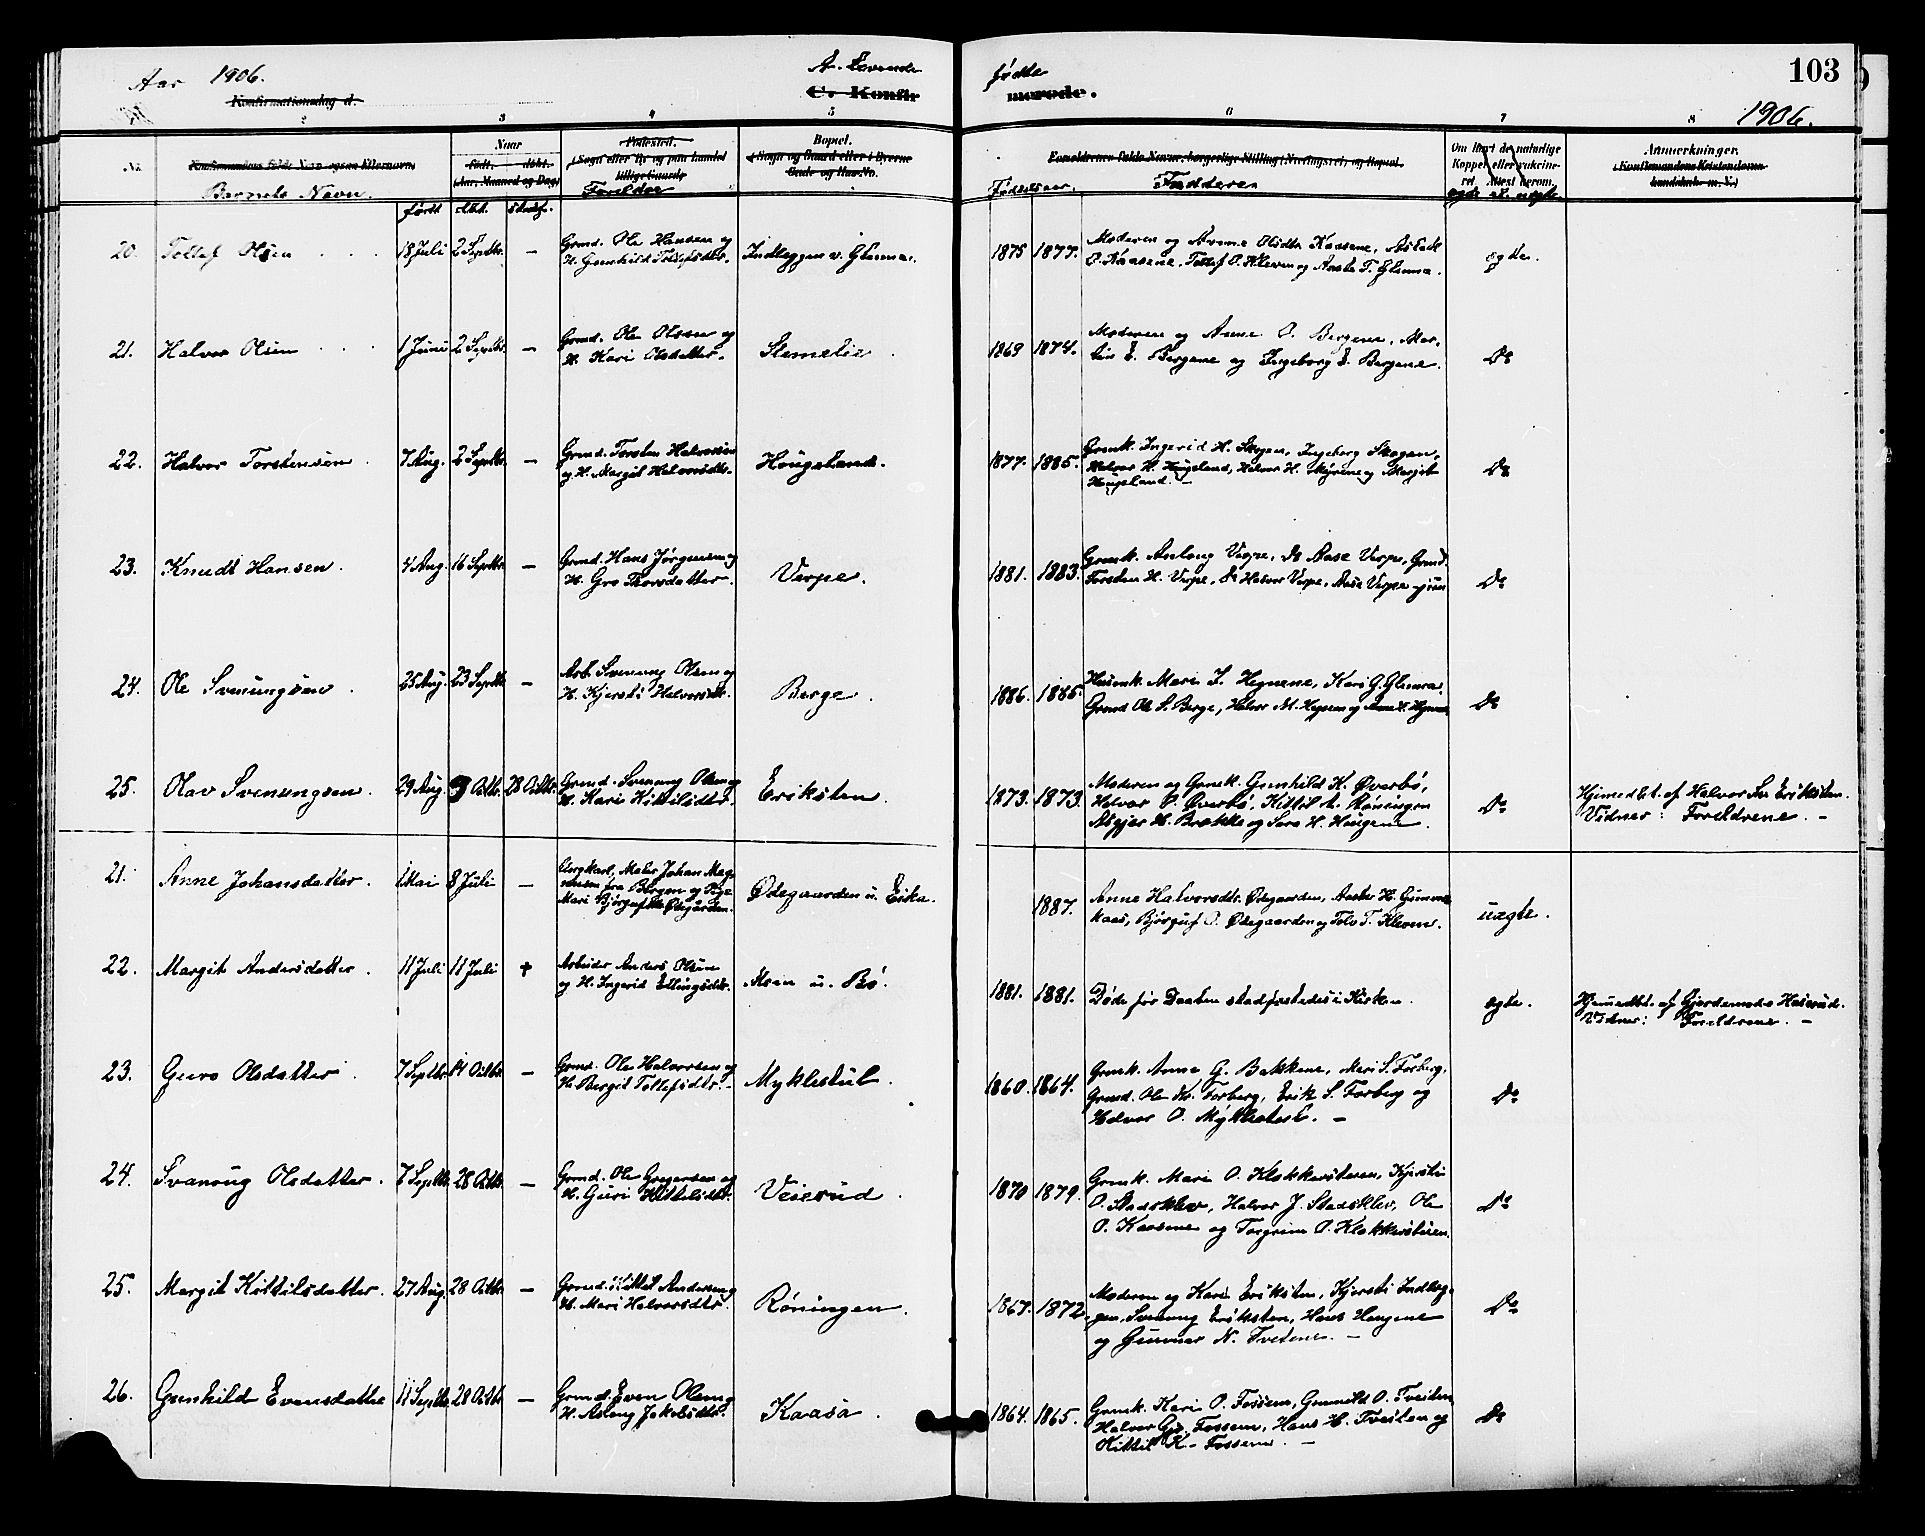 103
Aar 1906.
A. Levende
fødte
Konfirmationsdag d.
C. Konfir
merede.
1906.
2 3 4 5 6 7 8
Nr.
Konfirmandens fulde Navn ogsaa Efternavn.
Barnets Navn.
Naar
født. døbt.
(Aar, Maaned og Dag)
født døbt.
Fødested.
(Sogn eller By og paa Landet
tillige Gaard)
Forældre
Bopæl.
(Sogn og Gaard eller i Byerne
Gade og Hus No.
Fødselsaar.
Forældrenes fulde Navne, borgerlige Stilling (Næringsvei) og Bopæl.
Faddere
Om havt de naturlige
Kopper eller vakcine-
ret. Attest herom.
ægte el. uægte.
Anmerkninger.
(Konfirmandens Kristendoms-
kundskab m. V.)
20. Tollef Olsen 18 Juli 2 Septbr. — Grmd. Ole Hansen og
H. Gunhild Tollefsdtr. Indlæggen v. Glenna. 1875 1877. Moderen og Anne Olsdtr Kaasene, Aslak
O. Kaasene, Tollef O. Kleven og Aaste T. Glenna. ægte.
21. Halvor Olsen 1 Juni 2 Septbr. — Grmd. Ole Olsen og
H. Kari Olsdatter. Stemelie. 1869 1874. Moderen og Anne O. Bergene, Mar-
tin E. Bergene og Ingeborg E. Bergene. Do
22. Halvor Torstensen 7 Aug. 2 Septbr. — Grmd. Torsten Halvorsen
og H. Margit Halvorsdtr. Høugeland. 1877. 1885. Grmk. Ingerid H. Skogen, Ingeborg Skogen,
Halvor H. Høugeland, Halvor H. og Margit
Høugeland. — Do
23. Knudt Hansen. 4 Aug. 16 Septbr. — Grmd. Hans Jørgensen og
H. Gro Thorsdatter. Verpe. 1881. 1883. Grmk. Anlaug Verpe, Do Aase Verpe, Grmd.
Torsten H. Verpe, Do Halvor Verpe, Aase Verpe jun Do
24. Ole Svenungsen 25 Aug. 23 Septbr. — Arb. Svenung Olsen og
H. Kjersti Halvorsdtr. Berge. 1886. 1885. Husmk. Mari I. Hegnene, Kari G. Glenna.
Grmd Ole S. Berge, Halvor M. Hegnen og Anne H. Do
25. Olav Svenungsen. 29 Aug. 9 Octbr. 28 Octbr. Grmd. Svenung Olsen og
H. Kari Kittilsdtr. Eriksten. 1873. 1873. Moderen og Grmk. Gunhild K. Øverbø,
Halvor P. Øverbø, Kittil A. Røningen
Asgjer H. Brække og Sara H. Haugene. Do Hjemedbt. af Halvor Eriksten.
Vidner: Forældrene. —
21. Anne Johansdatter. 1 Mai 8 Juli — Ungkarl, Maler Johan Mag-
nusen fra Bergen og Pige
Mari Bjørgufsdtr Ødegården. Ødegaarden u. Eika. 1887. Anne Halvorsdtr. Ødegaarden, Aaste H. Gunne-
kaas, Bjørguf O. Ødegaarden og Tolv T. Kleven. uægte.
22. Margit Andersdatter. 11 Juli 11 Juli + Arbeider Anders Olsen
og H. Ingerid Ellingsdtr. Moen u. Bø. 1881. 1881. Døde før Daaben stadfæstedes i Kirken. ægte. Hjemedbt. af Gjordemoder Haserud.
Vidner: Forældrene. —
23. Guro Olsdatter. 7 Septbr. 14 Octbr. — Grmd. Ole Halvorsen og
H. Bergit Tollefsdtr. — Myklestul. 1860. 1864. Grmk. Anne G. Bakkene, Mari S. Forberg,
Grmd. Ole Forberg, Erik S. Forberg og
Halvor O. Myklestul. — Do
24. Svanoug Olsdatter. 7 Septbr. 28 Octbr. — Grmd. Ole Gregersen og
H. Guri Kittilsdtr. Veierud. 1870 1879. Grmk. Mari O. Klokkerstuen, Kjersti
O. Stadsklev, Halvor J. Stadsklev, Ole
O. Kaasene og Torgrim O. Klokkerstuen. Do
25. Margit Kittilsdatter. 27 Aug. 28 Octbr. — Grmd. Kittil Andersen og
H. Mari Halvorsdtr. Røningen. 1867. 1872. Moderen og Kari Eriksten, Kjersti Indlæg-
gen, Svenung Eriksten, Hans Haugene
og Gunnar N. Tvetene. — Do
26. Gunhild Evensdatter 11 Septbr. 28 Octbr. — Grmd. Even Olsen og
H. Aslaug Jakobsdtr. Kaasa. 1864. 1865. Grmk. Kari O. Fossem, Gunnild O. Tveiten
Halvor Fossem, Hans H. Tveiten og
Kittil K. Fossem. — Do